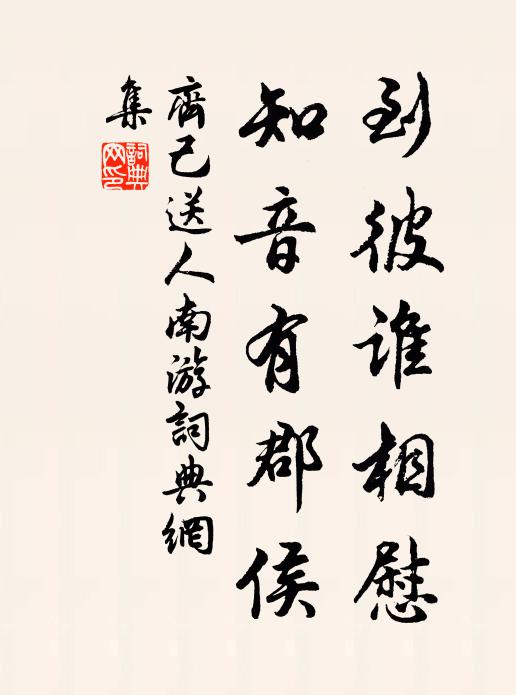 到彼谁相慰
知音有郡侯
齊己送人南游詞典網
集
詞典網印